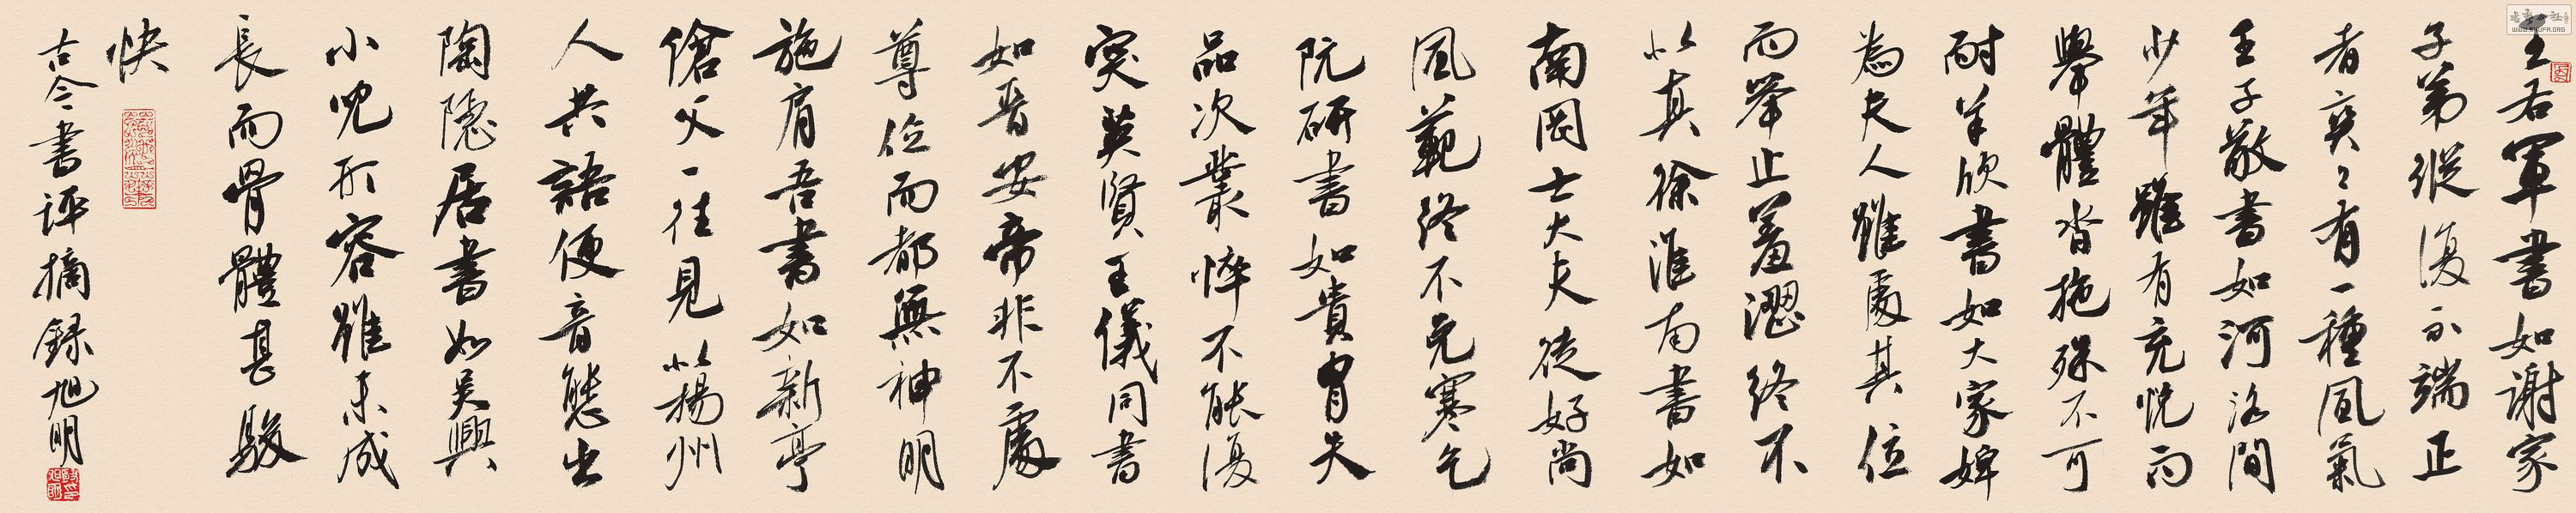 王右軍書如謝家
子弟縱復不端正
者爽々有一種風氣
王子敬書如河洛間
少年雖有充悅而
舉體沓拖殊不可
耐羊欣書如大家婢
為夫人雖處其位
而舉止羞澀終不
似真徐淮南書如
南岡士大夫徒好尚
風範終不免寒乞
阮研書如貴胄失
品次叢悴不能復
突英賢王儀同書
如晉安帝非不處
尊位而都無神明
施肩吾書如新亭
傖父一往見似揚州
人共語便音態出
陶隱居書如吳興
小兒形容雖未成
長而骨體甚駿
快
古今書評摘録旭明
WWW.SHUFA.ORG